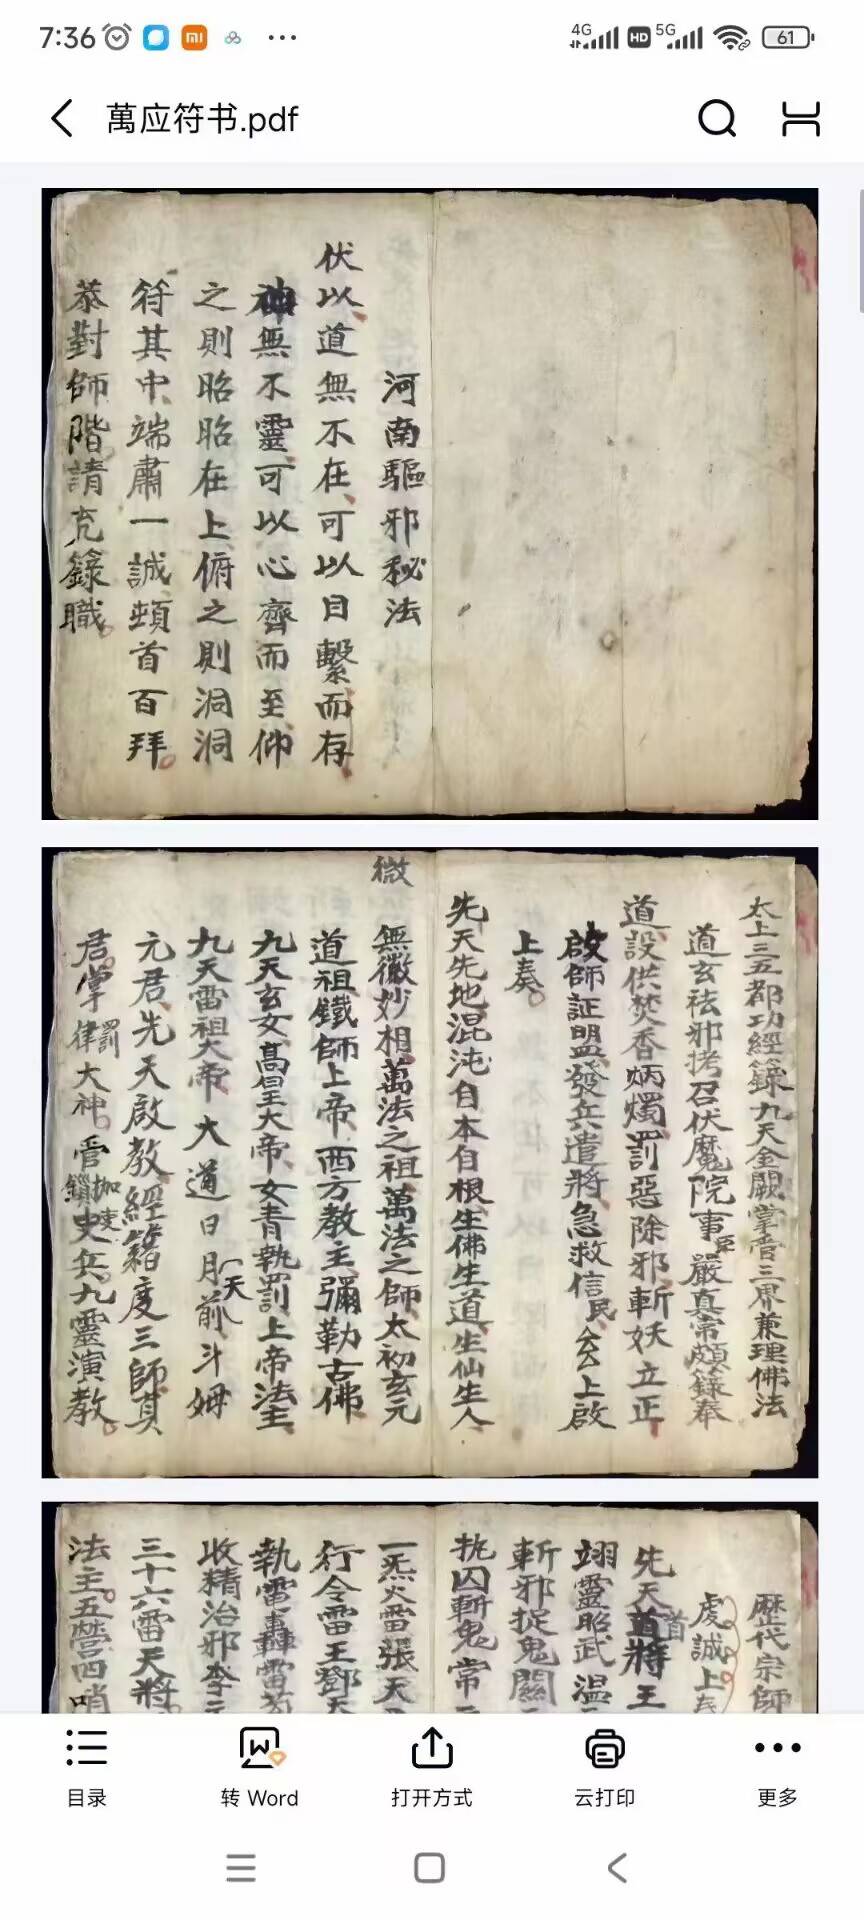 7:36
4G
HD
5G
61
萬应符书.pdf
河南驅邪秘法
伏以道無不在可以目繫而存
神無不靈可以心齊而至仰
之則昭昭在上俯之則洞洞
符其中端肅一誠頓首百拜
恭對師階請充籙職
太上三五都功經籙九天金闕掌管三界兼理佛法
道玄祛邪拷召伏魔院事臣嚴真常頗籙奉
道設供焚香炳燭罰惡除邪斬妖立正
啟師証盟發兵遣將急救信民厶厶上啟
上奏
先天先地混沌自本自根生佛生道生仙生人
微
無徽妙相萬法之祖萬法之師太初玄元
道祖鐵師上帝西方教主彌勒古佛
九天玄女高皇大帝女青執罰上帝法主
九天雷祖大帝大道日月前斗姆
天
元君先天啟教經籍度三師真
君掌律罰大神管鎖枷史兵九靈演教
歷代宗師
虔誠上
先天首將王
翊靈昭武温
斬邪捉鬼關
执囚斬鬼常
一炁火雷張天
行令雷王鄧天
執雷轟雷
收精治邪李元
三十六雷天將
法主五營四哨
目录
转 Word
打开方式
云打印
更多